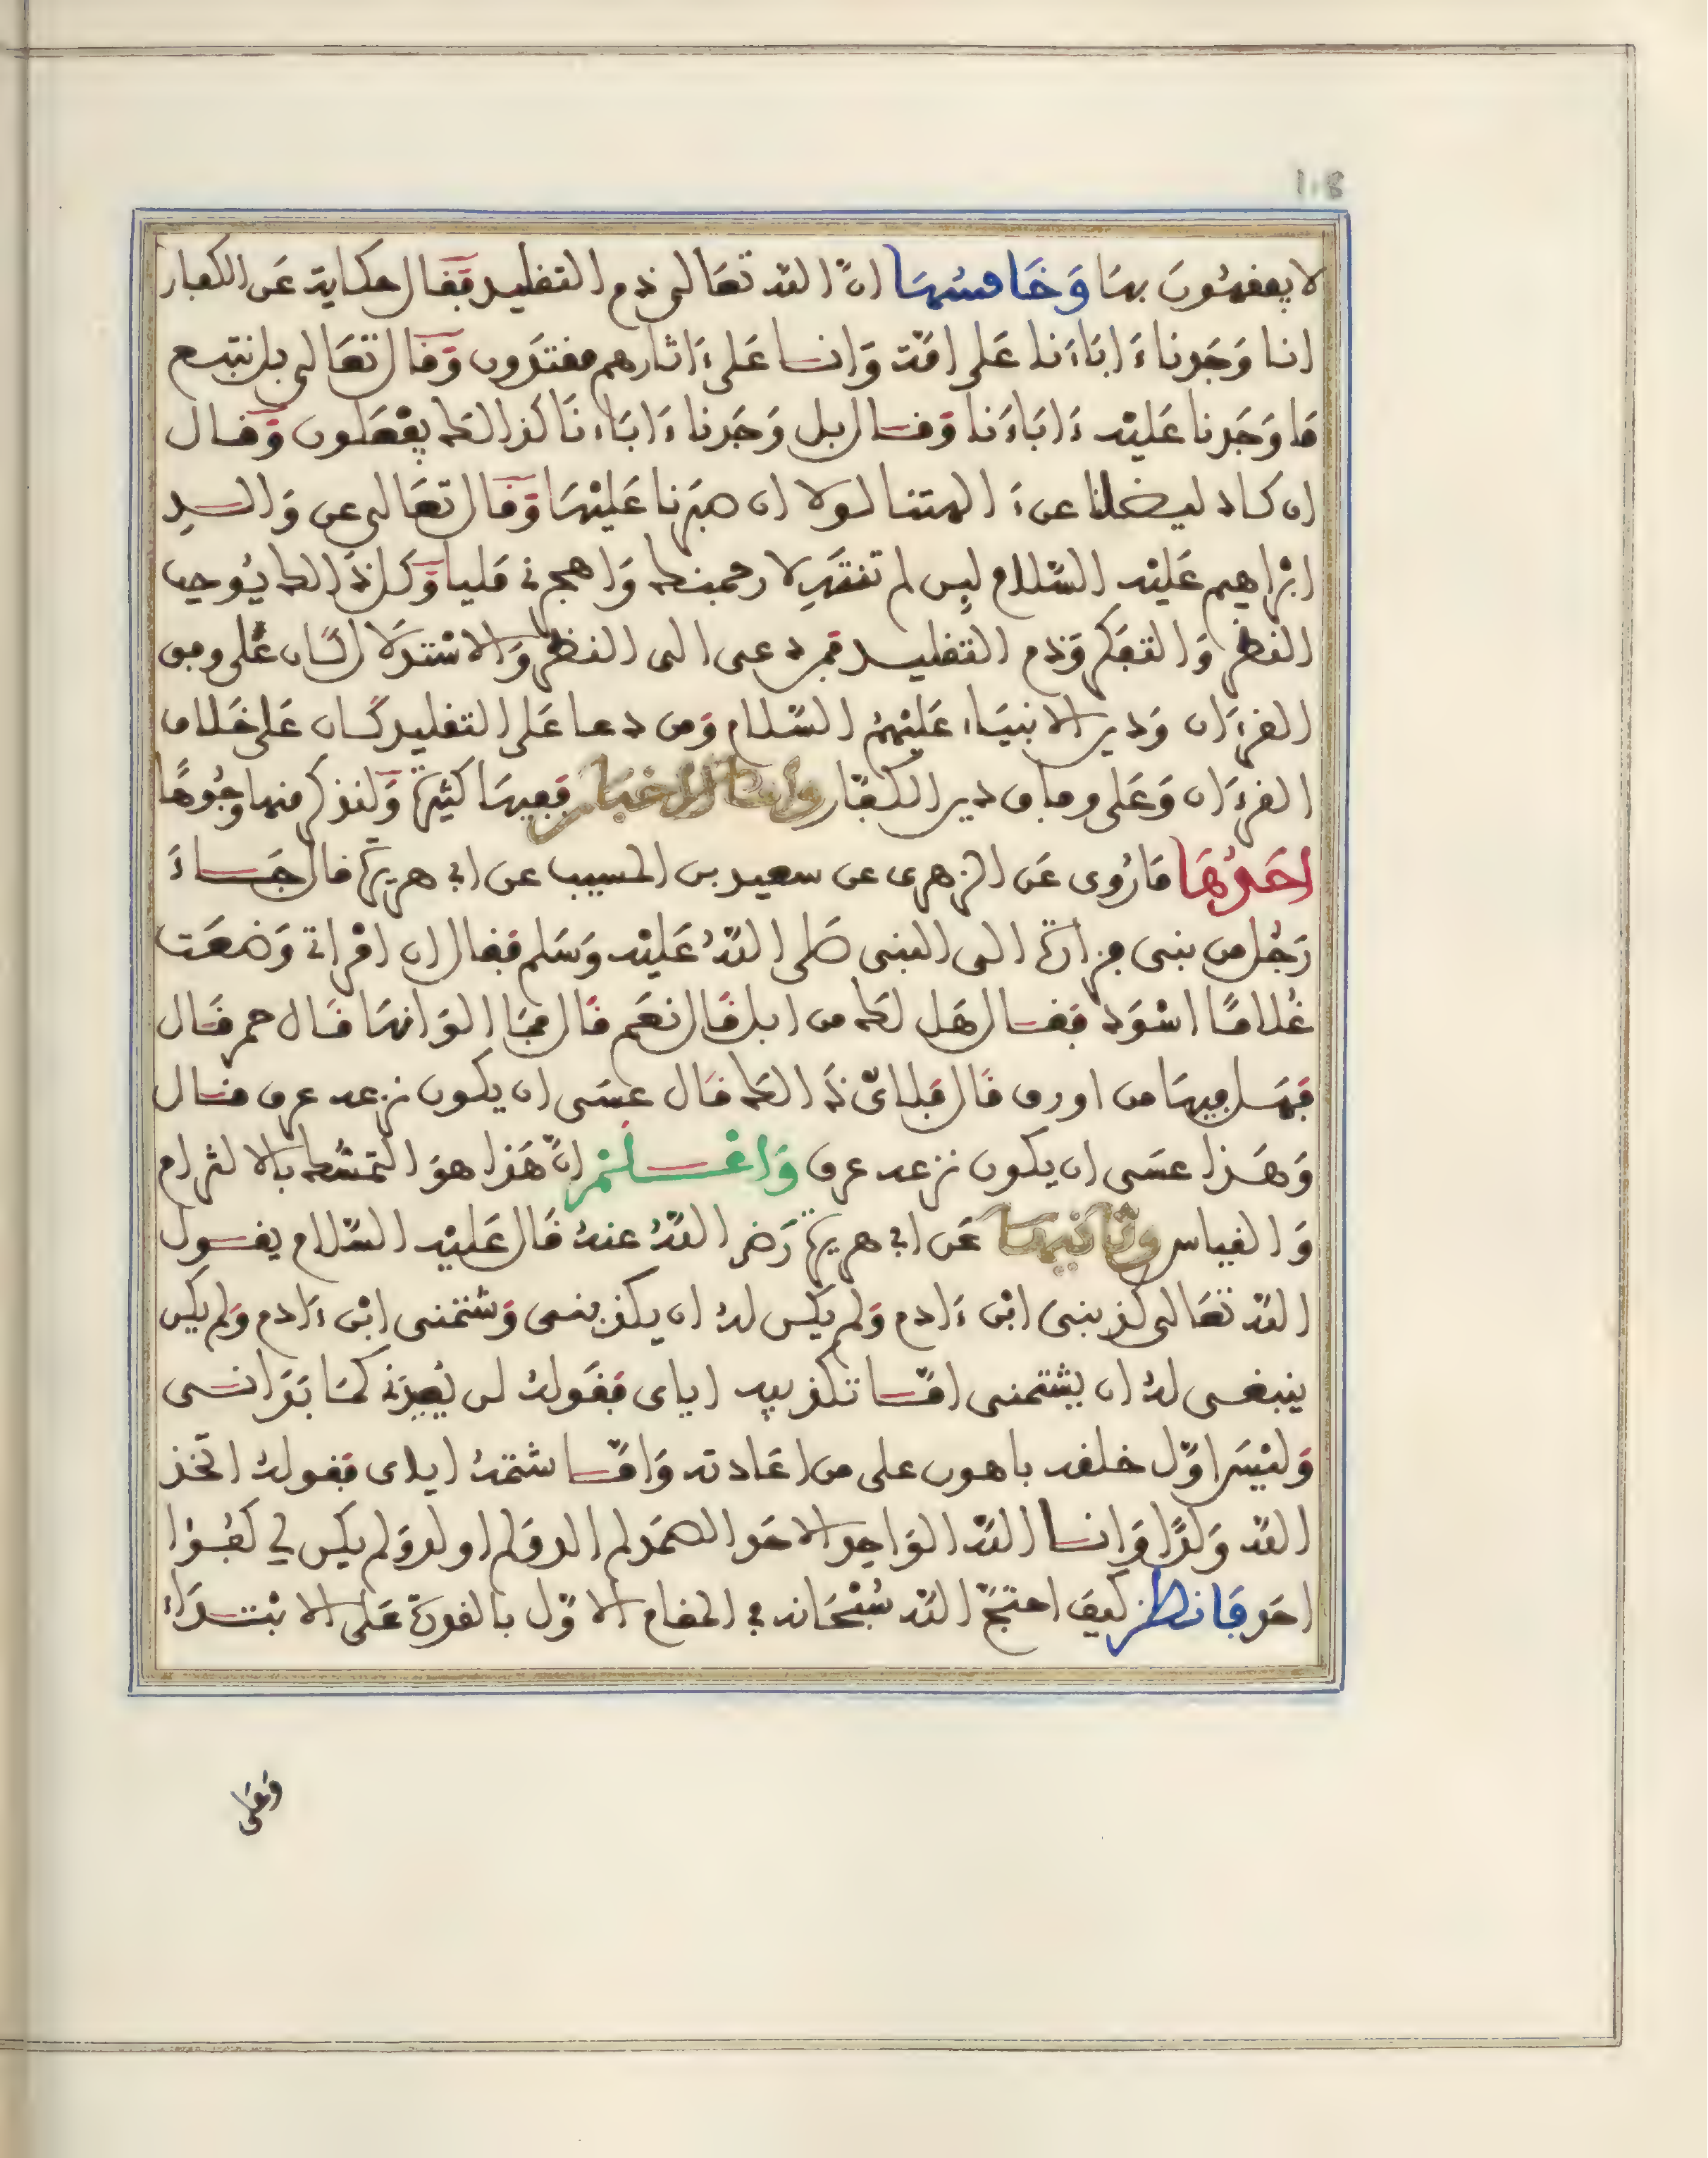 108
لا يفقهون بها وَخَامسُهَا انّ اللّه تعَالى ذم التقليد فقال حكاية عَن الكفار
انا وَجَدنا ءَابَاءَنا عَلى امّة وَانا عَلى ءَاثارهم مقتدون وَقال تعَالى بل نتبع
مَا وَجَدنا عَليْه ءَابَاءَنا وَقال بل وَجَدنا ءَابَاءنَا كذالك يفْعَلون وَقال
ان كاد ليضلنا عن ءَالهتنا لولا ان صبَرنا عَليْهَا وَقال تعَالى عن وَالد
ابْرَاهيم عَليْه السّلام ليِن لم تنتَهِ لارجمنك وَاهجرني مَليا وَكل ذَالك يُوجب
النظر وَالتفَكر وَذم التقليد فمن دعى الى النظر وَالاسْتدلَال كَان عَلى وفق
القرءَان وَدين الانبيَاء عَليْهمُ السّلام وَمن دعا عَلى التقليد كَان عَلى خَلاف
القرءَان وَعَلى وفاق دين الكفّار وامّا الاخبار ففيهَا كثيرة وَلنذكر منها وجُوهًا
احَدُهَا مَا رُوى عَن الزهرى عن سعيد بن المسيب عن ابي هريرة قال جَاءَ
رَجُل من بنى فزارة الى النبى صَلى اللّهُ عَليْه وَسَلم فقال ان امْراتي وَضعَت
غُلامًا اسْوَد فقال هَل لك من ابل قَال نعَم قَال فمَا الوَانهَا قَال حمر قَال
فهَل فيهَا من اورق قَال نعم قال فانّى ذَالك قَال عسَى ان يكون نزعه عرق قَال
وَهَذا عسَى ان يكون نزعه عرق وَاعْلمْ انّ هَذا هوَ التمسُّك بالالزام
وَالقياس وثانيهَا عَن ابي هريرة رَضى اللّهُ عنهُ قَال عَليْه السّلام يقول
اللّه تعَالى كذبنى ابْن ءَادم وَلم يكن لهُ ان يكذبنى وَشتمنى ابْن ءَادم وَلم يكن
ينبغى لهُ ان يشتمنى امّا تكذيبه اياى فقَولهُ لن يُعيدَني كمَا بَدَانى
وَليْسَ اوّل خلقه باهون على من اعَادته وَامّا شتمهُ اياى فقولهُ اتّخذ
اللّه وَلدًا وَانا اللّه الوَاحد الاحَد الصمَد لم الد وَلم اولد وَلم يكن لي كفُؤا
احَد فَانظر كيف احتجّ اللّه سُبْحَانه في المقام الاوّل بالقدرة عَلى الابْتدَاءِ
وَعَلى